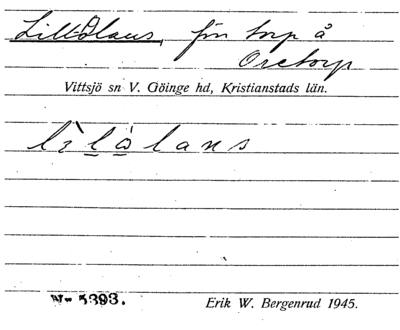 Lill-Olaus, förr torp å
Oretorp
Vittsjö sn V. Göinge hd, Kristianstads län.
lìlòlans
W- 5393.
Erik W. Bergenrud 1945.